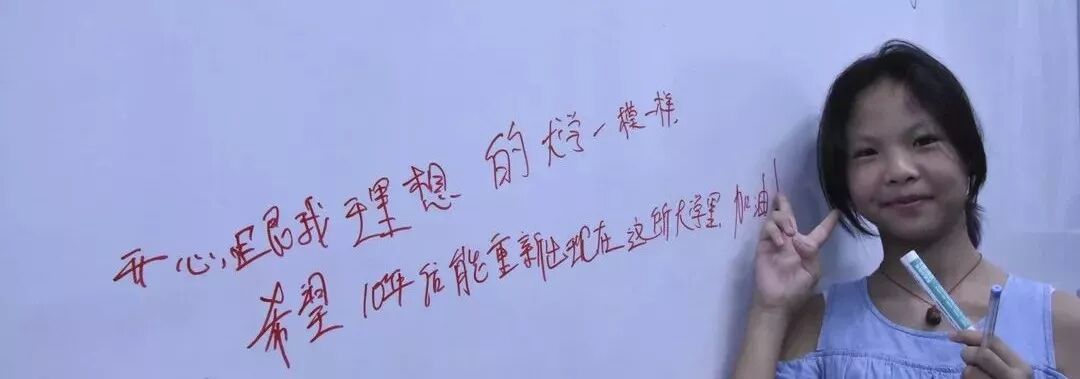 开心,跟我理想的大学一模一样
希望10年后能重新出现在这所大学里,加油!